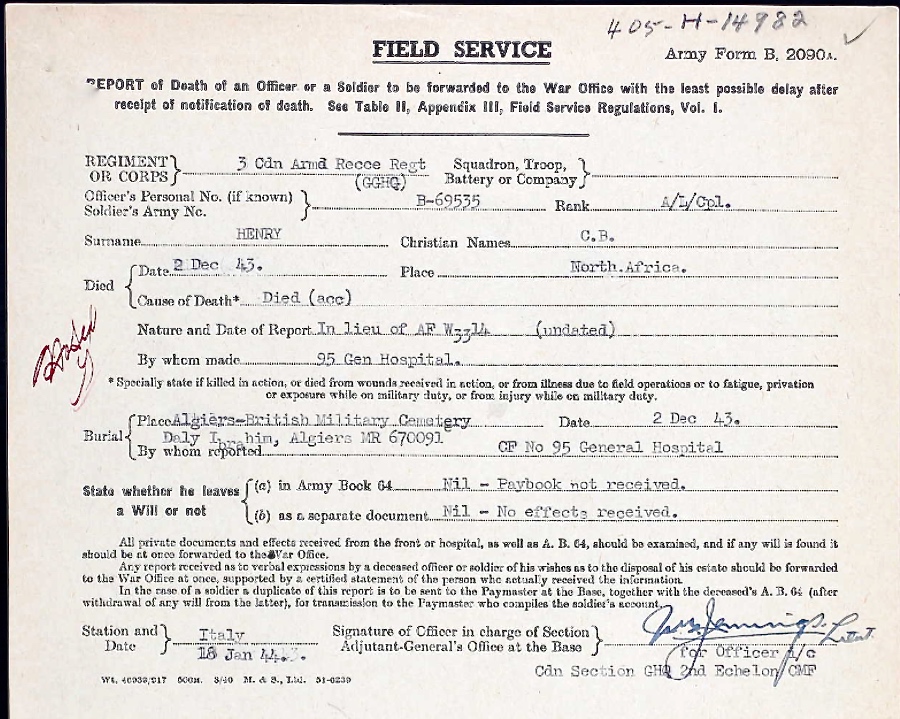 405-H-14982
FIELD SERVICE
Army Form B. 2090A.
REPORT of Death of an Officer or a Soldier to be forwarded to the War Office with the least possible delay after
receipt of notification of death. See Table II, Appendix III, Field Service Regulations, Vol. I.
REGIMENT OR CORPS } 3 Cdn Armd Recce Regt (GGHG) Squadron, Troop, Battery or Company }
Officer's Personal No. (if known) Soldier's Army No. } B-69535 Rank A/L/Cpl.
Surname HENRY Christian Names C.B.
Died { Date 2 Dec 43. Place North.Africa.
Cause of Death* Died (acc)
Nature and Date of Report In lieu of AF W3314 (undated)
By whom made 95 Gen Hospital.
* Specially state if killed in action, or died from wounds received in action, or from illness due to field operations or to fatigue, privation
or exposure while on military duty, or from injury while on military duty.
Burial { Place Algiers-British Military Cemetery Date 2 Dec 43.
Daly Ibrahim, Algiers MR 670091
By whom reported CF No 95 General Hospital
State whether he leaves a Will or not { (a) in Army Book 64 Nil - Paybook not received.
(b) as a separate document Nil - No effects received.
All private documents and effects received from the front or hospital, as well as A. B. 64, should be examined, and if any will is found it
should be at once forwarded to the War Office.
Any report received as to verbal expressions by a deceased officer or soldier of his wishes as to the disposal of his estate should be forwarded
to the War Office at once, supported by a certified statement of the person who actually received the information.
In the case of a soldier a duplicate of this report is to be sent to the Paymaster at the Base, together with the deceased's A. B. 64 (after
withdrawal of any will from the latter), for transmission to the Paymaster who compiles the soldier's account.
Station and Date } Italy 18 Jan 44. Signature of Officer in charge of Section Adjutant-General's Office at the Base } Jennings. Lieut.
for Officer i/c
Cdn Section GHQ 2nd Echelon CMF
Wt. 46933/217 600M. 3/40 M. & S., Ltd. 51-6239